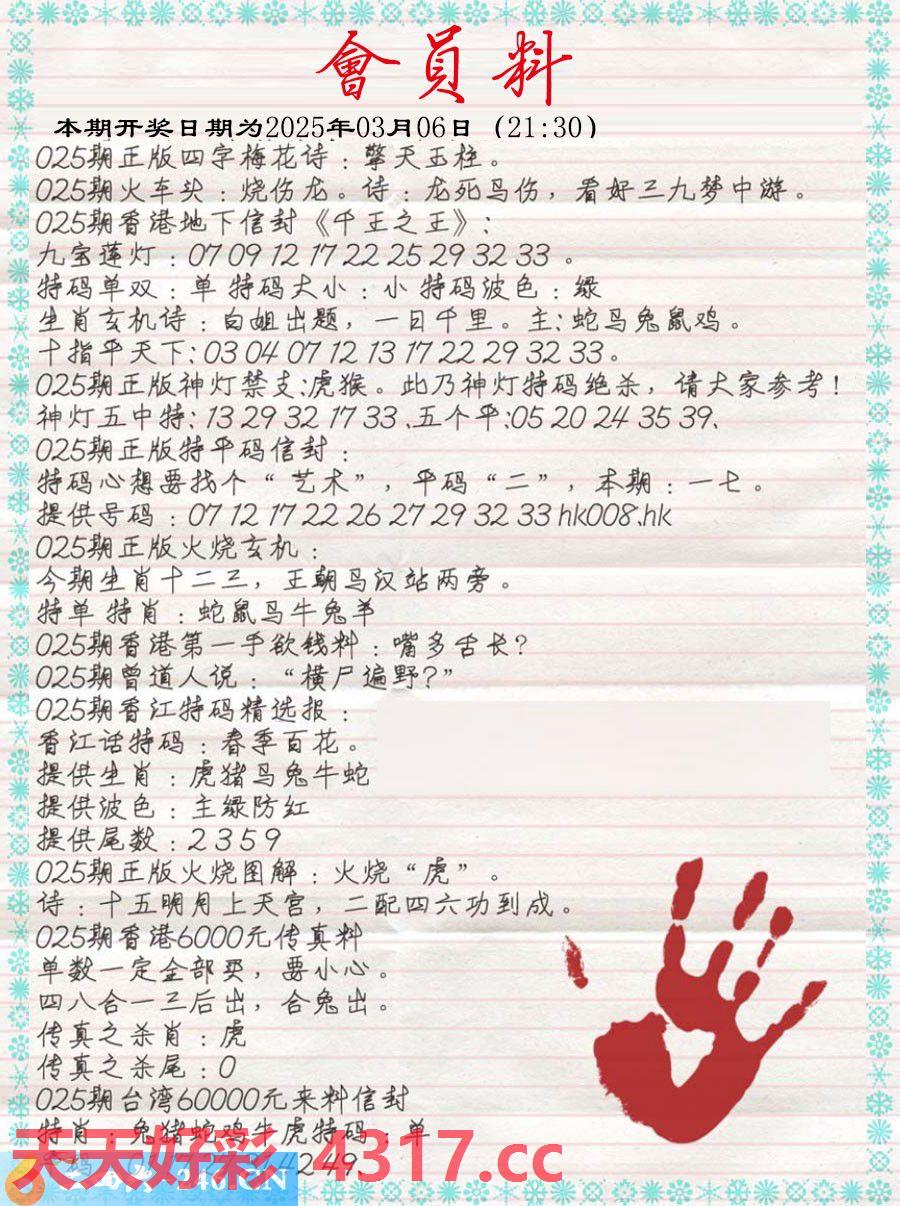 會員料
本期开奖日期为2025年03月06日（21:30）
025期正版四字梅花诗：擎天玉柱。
025期火车头：烧伤龙。诗：龙死鸟伤，看好三九梦中游。
025期香港地下信封《千王之王》:
九宝莲灯：07 09 12 17 22 25 29 32 33 。
特码单双：单 特码大小：小 特码波色：绿
生肖玄机诗：白姐出题，一日千里。主:蛇马兔鼠鸡。
十指平天下:03 04 07 12 13 17 22 29 32 33。
025期正版神灯禁支:虎猴。此乃神灯特码绝杀，请大家参考！
神灯五中特: 13 29 32 17 33 .五个平:05 20 24 35 39.
025期正版特平码信封：
特码心想要找个“艺术”，平码“二”，本期：一七。
提供号码：07 12 17 22 26 27 29 32 33 hk008.hk
025期正版火烧玄机：
今期生肖十二三，王朝马汉站两旁。
特单 特肖：蛇鼠马牛兔羊
025期香港第一手欲钱料：嘴多舌长？
025期曾道人说：“横尸遍野？”
025期香江特码精选报：
香江话特码：春季百花。
提供生肖：虎猪马兔牛蛇
提供波色：主绿防红
提供尾数：2 3 5 9
025期正版火烧图解：火烧“虎”。
诗：十五明月上天宫，二配四六功到成。
025期香港6000元传真料
单数一定全部买，要小心。
四八合一三后出，合兔出。
传真之杀肖：虎
传真之杀尾：0
025期台湾60000元来料信封
特肖：兔猪蛇鸡牛虎特码：单
42 49.
天天好彩 4317.cc